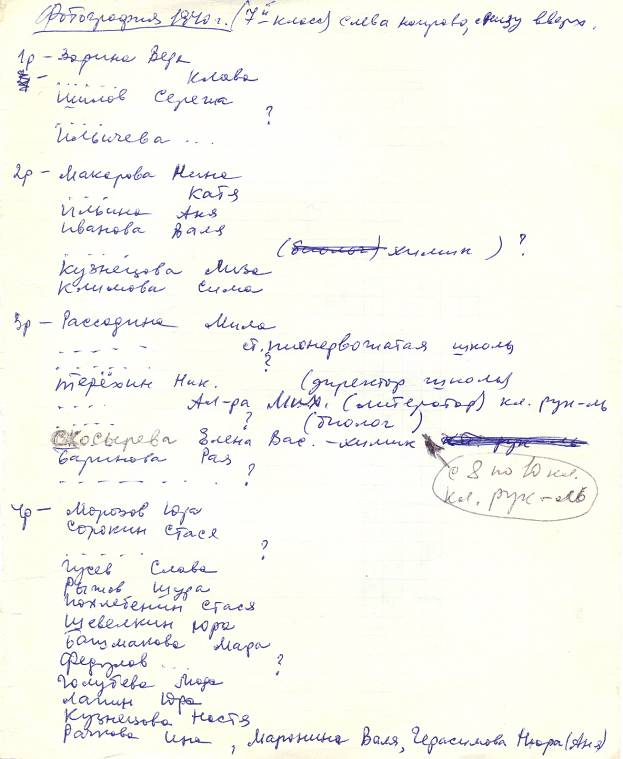 Фотография 1940 г. (7й класс) слева направо, снизу вверх.
1р – Зорина Вера
– . . . . . . Клава
Шилов Сережа
. . . . . . ?
Ильичева ...
2р – Макарова Нина
. . . . . . Катя
Ильина Аня
Иванова Валя
. . . . . . (биолог) химик ) ?
Кузнецова Лиза
Климова Сима
3р – Рассадина Мила
– – – – – ст. пионервожатая школы
. . . . . . ?
Терёхин Ник. (директор школы)
. . . . Ал-ра Мих. (литератор) кл. рук-ль
– – – – – ? (биолог )
Скосырева Елена Вас. – химик кл. рук-ль
Баринова Рая
– – – – – . . ?
с 8 по 10 кл.
кл. рук-ль
4р – Морозов Юра
Сорокин Стася
. . . . . . ?
Гусев Слава
Рыжов Шура
Похлебенин Стася
Шевелкин Юра
Башмакова Мара
Федулов ... ?
Голубева
Лапин Юра
Кузнецова Настя
Рачкова Ина, Маронина Валя, Герасимова Нюра (Аня)